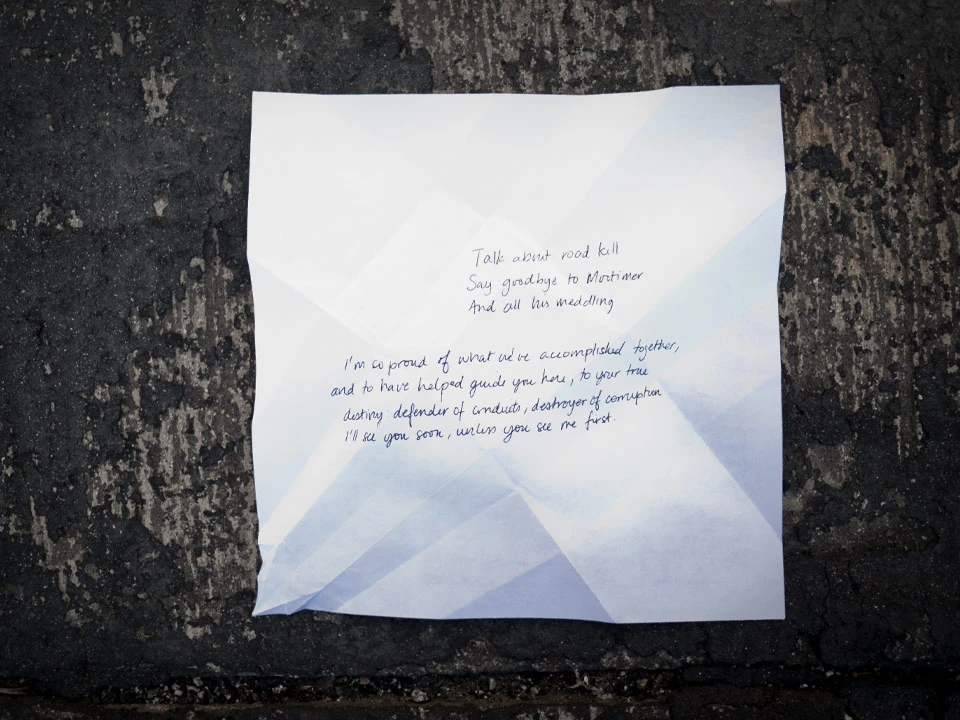 Talk about road kill
Say goodbye to Mortimer
And all his meddling
I'm so proud of what we've accomplished together,
and to have helped guide you here, to your true
destiny: defender of conduits, destroyer of corruption
I'll see you soon, unless you see me first.